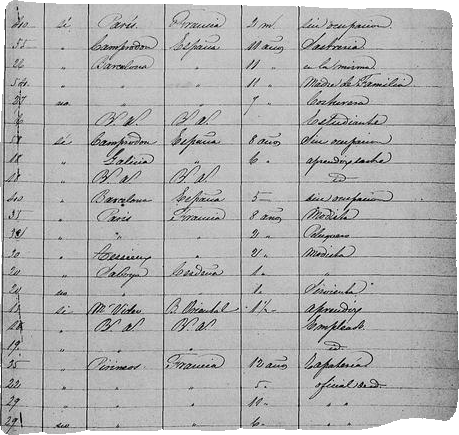 40 " si París. Francia 2 m. sin ocupacion
55 " Camprodon España 10 años Sastreria
26 " Barcelona " 11 " en la misma
" " " 11 " Madre de Familia
no " " 7 " Costurera
" B A B A Estudiante
si Camprodon España 8 años Sin ocupacion
18 " Galicia " 6 " aprendiz sastre
" B A B A id
40 " Barcelona España 5 " sin ocupacion
35 " París Francia 8 años Modista
" " " 2 " Peluquero
30 " " 2 " Modista
20 " Saboya Cerdeña 1 " "
20 no " " 1 " Sirvienta
si M Video B. Oriental 1 1/2 aprendiz
" B A B A Empleado
19 " " " id
35 " Pirineos Francia 12 años Zapatería
22 " " " 5 " oficial de id
29 " " " 10 " " "
29 no " " 6 " " "